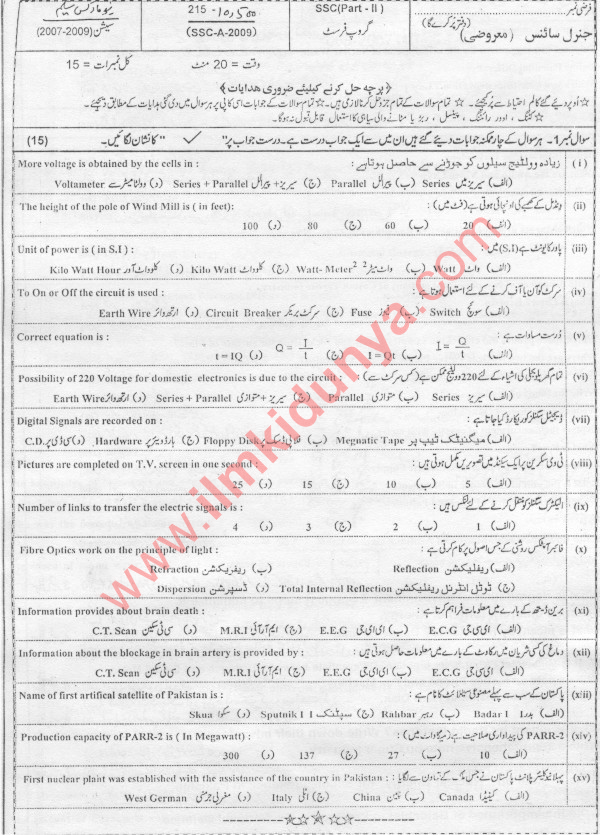 فرضی نمبر
SSC(Part - II)
215 -10,500
(دفتر پُر کرے گا)
جنرل سائنس (معروضی)
گروپ فرسٹ
(SSC-A-2009)
سیشن (2007-2009)
وقت = 20 منٹ
کل نمبرات = 15
﴿پرچہ حل کرنے کیلیئے ضروری ھدایات﴾
سوال نمبر 1۔ ہر سوال کے چار ممکنہ جوابات دیئے گئے ہیں ان میں سے ایک جواب درست ہے۔ درست جواب پر " ✓ " کا نشان لگائیں۔ (15)
(i) زیادہ وولٹیج سیلوں کو جوڑنے سے حاصل ہوتا ہے: More voltage is obtained by the cells in :
(الف) سیریز میں Series (ب) پیرالل Parallel (ج) سیریز+ پیرالل Series + Parallel (د) وولٹا میٹر سے Voltameter
(ii) ونڈمل کے کھمبے کی اونچائی ہوتی ہے (فٹ میں): The height of the pole of Wind Mill is ( in feet):
(الف) 20 (ب) 60 (ج) 80 (د) 100
(iii) پاور کا یونٹ ہے (S.I) میں: Unit of power is ( in S.I ) :
(الف) واٹ Watt (ب) واٹ میٹر² Watt- Meter² (ج) کلوواٹ Kilo Watt (د) کلوواٹ آور Kilo Watt Hour
(iv) سرکٹ کو آن یا آف کرنے کے لئے استعمال ہوتا ہے: To On or Off the circuit is used :
(الف) سوئچ Switch (ب) فیوز Fuse (ج) سرکٹ بریکر Circuit Breaker (د) ارتھ وائر Earth Wire
(v) درست مساوات ہے: Correct equation is :
(الف) I = Q/t (ب) I = Qt (ج) Q = I/t (د) t = IQ
(vi) تمام گھریلو بجلی کی اشیاء کے لئے 220 وولٹیج ممکن ہے (کس سرکٹ سے): Possibility of 220 Voltage for domestic electronics is due to the circuit :
(الف) سیریز Series (ب) متوازی Parallel (ج) سیریز+ متوازی Series + Parallel (د) ارتھ وائر Earth Wire
(vii) ڈیجیٹل سگنلز کو ریکارڈ کیا جاتا ہے: Digital Signals are recorded on :
(الف) میگنیٹک ٹیپ پر Megnatic Tape (ب) فلاپی ڈسک پر Floppy Disk (ج) ہارڈ ویئر پر Hardware (د) سی ڈی پر C.D.
(viii) ٹی وی سکرین پر ایک سیکنڈ میں تصویریں مکمل ہوتی ہیں: Pictures are completed on T.V. screen in one second :
(الف) 5 (ب) 10 (ج) 15 (د) 25
(ix) الیکٹرک سگنلز کو منتقل کرنے کے لئے لنکس ہیں: Number of links to transfer the electric signals is :
(الف) 1 (ب) 2 (ج) 3 (د) 4
(x) فائبر آپٹکس روشنی کے جس اصول پر کام کرتی ہے: Fibre Optics work on the principle of light :
(الف) ریفلیکشن Reflection (ب) ریفریکشن Refraction
(ج) ٹوٹل انٹرنل ریفلیکشن Total Internal Reflection (د) ڈسپرشن Dispersion
(xi) برین ڈیتھ کے بارے میں معلومات فراہم کرتا ہے: Information provides about brain death :
(الف) ای سی جی E.C.G (ب) ای ای جی E.E.G (ج) ایم آر آئی M.R.I (د) سی ٹی سکین C.T. Scan
(xii) دماغ کی کسی شریان میں رکاوٹ کے بارے میں معلومات حاصل ہوتی ہیں: Information about the blockage in brain artery is provided by :
(الف) ای سی جی E.C.G (ب) ای ای جی E.E.G (ج) ایم آر آئی M.R.I (د) سی ٹی سکین C.T. Scan
(xiii) پاکستان کے سب سے پہلے مصنوعی سٹلائٹ کا نام ہے: Name of first artifical satellite of Pakistan is :
(الف) بدر Badar I (ب) رہبر Rahbar (ج) سپٹنک Sputnik I I (د) سکوا Skua
(xiv) PARR-2 کی پیداواری صلاحیت ہے (میگاواٹ میں): Production capacity of PARR-2 is ( In Megawatt) :
(الف) 10 (ب) 27 (ج) 137 (د) 300
(xv) پہلا نیوکلیئر پلانٹ پاکستان نے جس ملک کے تعاون سے لگایا: First nuclear plant was established with the assistance of the country in Pakistan :
(الف) کینیڈا Canada (ب) چین China (ج) اٹلی Italy (د) مغربی جرمنی West German
www.ilmkidunya.com